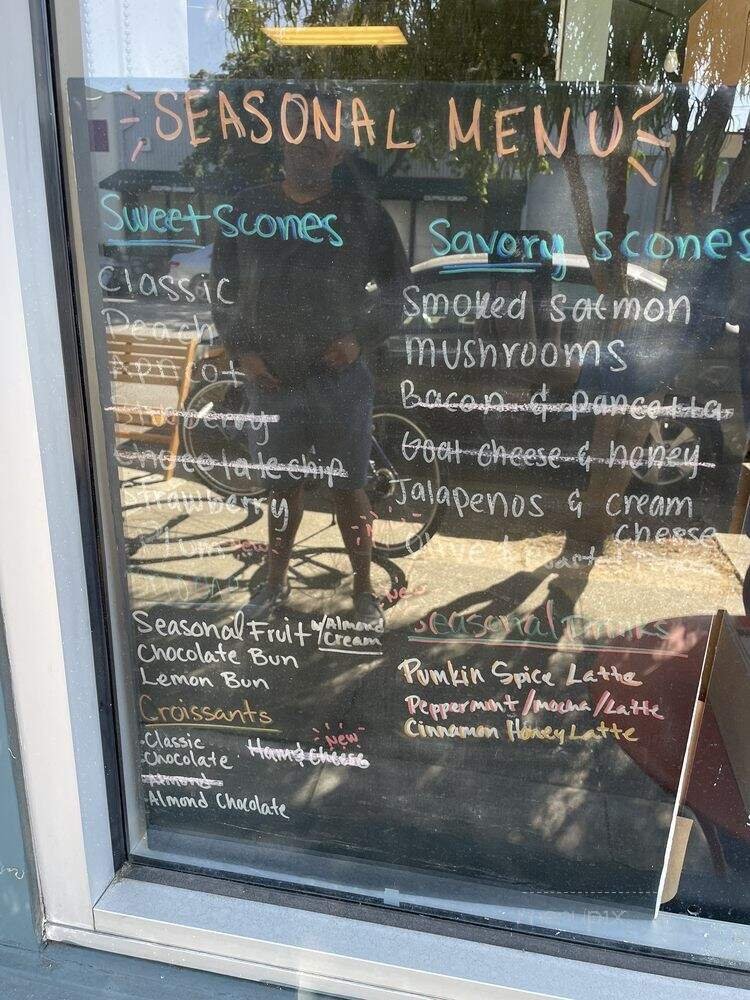 SEASONAL MENU
Sweet Scones
Classic
Peach
Apricot
Blueberry
Chocolate chip
Strawberry
Plum New
Savory scones
Smoked salmon
mushrooms
Bacon & pancetta
Goat cheese & honey
Jalapenos & cream
cheese
New
Olive &
New
Seasonal Fruit w/Almond
Cream
Chocolate Bun
Lemon Bun
Croissants
-Classic
-Chocolate
Ham & cheese New
-Almond
-Almond Chocolate
Seasonal Drinks
Pumkin Spice Latte
Peppermint/mocha/Latte
Cinnamon Honey Latte